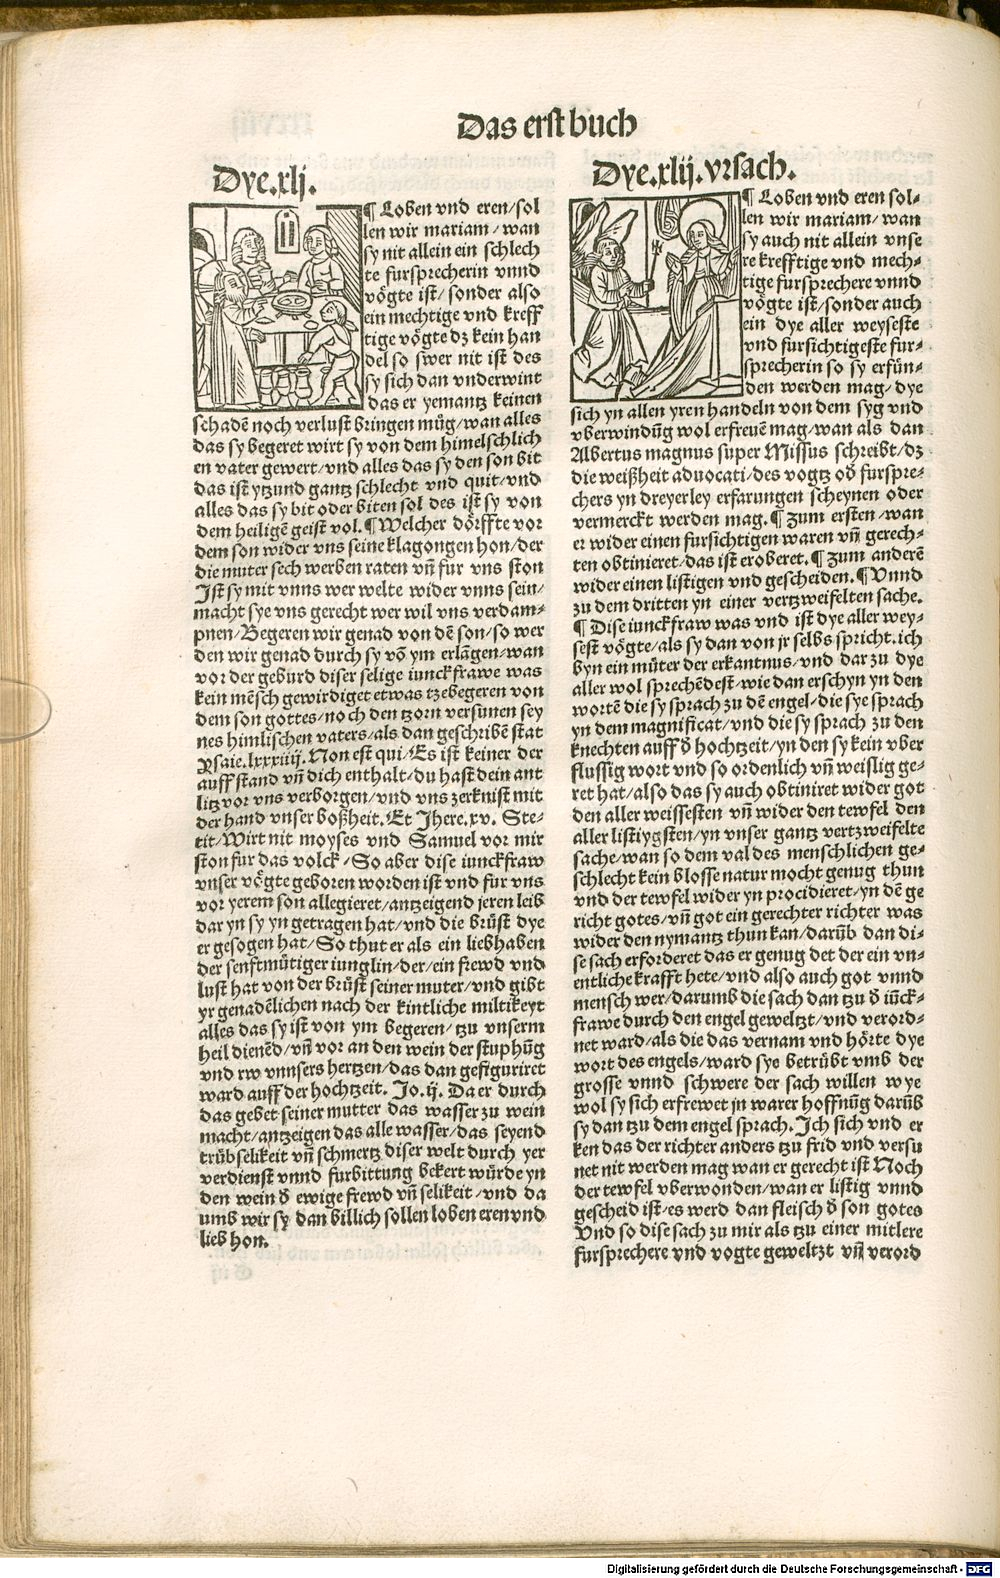 Das erst buch
Dye.xlj.
¶ Loben vnd eren/sol
len wir mariam/wan
sy nit allein ein schlech
te fursprecherin vnnd
vögte ist/sonder also
ein mechtige vnd kreff
tige vögte dz kein han
del so swer nit ist des
sy sich dan vnderwint
das er yemantz keinen
schadē noch verlust bringen müg/wan alles
das sy begeret wirt sy von dem himelschlich
en vater gewert/vnd alles das sy den son bit
das ist ytzund gantz schlecht vnd quit/vnd
alles das sy bit oder biten sol des ist sy von
dem heiligē geist vol.¶Welcher dörffte vor
dem son wider vns seine klagongen hon/der
die muter sech werben raten vn̄ fur vns ston
Ist sy mit vnns wer welte wider vnns sein/
macht sye vns gerecht wer wil vns verdam⸗
pnen/Begeren wir genad von dē son/so wer
den wir genad durch sy vō ym erlāgen/wan
vor der geburd diser selige iunckfrawe was
kein mēsch gewirdiget etwas tzebegeren von
dem son gottes/noch den tzorn versunen sey
nes himlischen vaters/als dan geschribē stat
Psaie.lxxxiiij.Non est qui/Es ist keiner der
auff stand vn̄ dich enthalt/du hast dein ant
litz vor vns verborgen/vnd vns zerknist mit
der hand vnser boßheit.Et Jhere.xv. Ste⸗
tit/Wirt nit moyses vnd Samuel vor mir
ston fur das volck/So aber dise iunckfraw
vnser vögte geboren worden ist vnd fur vns
vor yerem son allegieret/antzeigend jeren leib
dar yn sy yn getragen hat/vnd die brüst dye
er gesogen hat/So thut er als ein liebhaben
der senftmütiger iunglin/der/ein frewd vnd
lust hat von der brüst seiner muter/vnd gibt
yr genadēlichen nach der kintliche miltikeyt
alles das sy ist von ym begeren/tzu vnserm
heil dienēd/vn̄ vor an den wein der stuphūg
vnd rw vnnsers hertzen/das dan gefiguriret
ward auff der hochtzeit. Jo.ij. Da er durch
das gebet seiner mutter das wasser zu wein
macht/antzeigen das alle wasser/das seyend
trübselikeit vn̄ schmertz diser welt durch yer
verdienst vnnd furbittung bekert würde yn
den wein d̄ ewige frewd vn̄ selikeit/vnd da
umb wir sy dan billich sollen loben eren vnd
lieb hon.
Dye.xlij.vrsach.
¶ Loben vnd eren sol⸗
len wir mariam/wan
sy auch nit allein vnse
re krefftige vnd mech⸗
tige fursprechere vnnd
vögte ist/sonder auch
ein dye aller weyseste
vnd fursichtigeste fur⸗
sprecherin so sy erfün⸗
den werden mag/dye
sich yn allen yren handeln von dem syg vnd
vberwindūg wol erfreuē mag/wan als dan
Albertus magnus super Missus schreibt/dz
die weißheit aduocati/des vogtz od̄ furspre⸗
chers yn dreyerley erfarungen scheynen oder
vermerckt werden mag.¶ Zum ersten/wan
er wider einen fursichtigen waren vn̄ gerech⸗
ten obtinieret/das ist eroberet.¶ Zum anderē
wider einen listigen vnd gescheiden.¶Vnnd
zu dem dritten yn einer vertzweifelten sache.
¶ Dise iunckfraw was vnd ist dye aller wey⸗
sest vögte/als sy dan von jr selbs spricht.ich
byn ein müter der erkantnus/vnd dar zu dye
aller wol sprechēdest/wie dan erschyn yn den
wortē die sy sprach zu dē engel/die sye sprach
yn dem magnificat/vnd die sy sprach zu den
knechten auff d̄ hochtzeit/yn den sy kein vber
flussig wort vnd so ordenlich vn̄ weislig ge⸗
ret hat/also das sy auch obtiniret wider got
den aller weissesten vn̄ wider den tewfel den
aller listiygsten/yn vnser gantz vertzweifelte
sache/wan so dem val des menschlichen ge⸗
schlecht kein blosse natur mocht genug thun
vnd der tewfel wider yn procidieret/yn dē ge
richt gotes/vn̄ got ein gerechter richter was
wider den nymantz thun kan/darūb dan di⸗
se sach erforderet das er genug det der ein vn⸗
entliche krafft hete/vnd also auch got vnnd
mensch wer/darumb die sach dan tzu d̄ iūck⸗
frawe durch den engel geweltzt/vnd verord⸗
net ward/als die das vernam vnd hörte dye
wort des engels/ward sye betrübt vmb der
grosse vnnd schwere der sach willen wye
wol sy sich erfrewet jn warer hoffnūg darūb
sy dan tzu dem engel sprach.Ich sich vnd er
ken das der richter anders tzu frid vnd versu
net nit werden mag wan er gerecht ist Noch
der tewfel vberwonden/wan er listig vnnd
gescheid ist/es werd dan fleisch d̄ son gotes
Vnd so dise sach zu mir als tzu einer mitlere
fursprechere vnd vogte geweltzt vn̄ verord
Digitalisierung gefördert durch die Deutsche Forschungsgemeinschaft - DFG